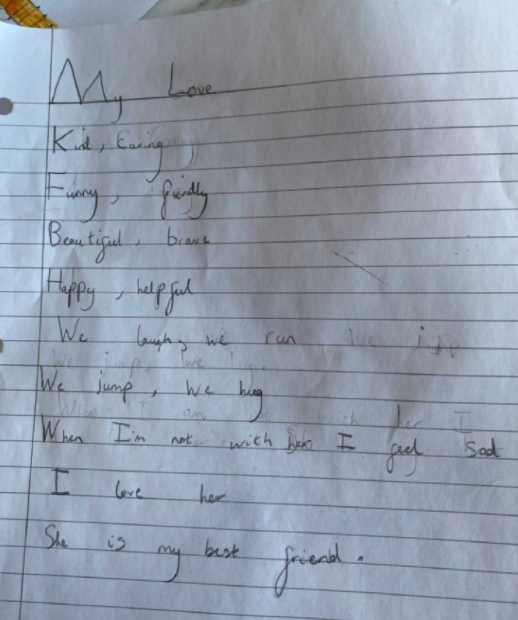 My Love
Kind, Caring
Funny, friendly
Beautiful, brave
Happy, helpful
We laugh, we run
We jump, we hug
When I'm not with her I feel sad
I love her
She is my best friend.